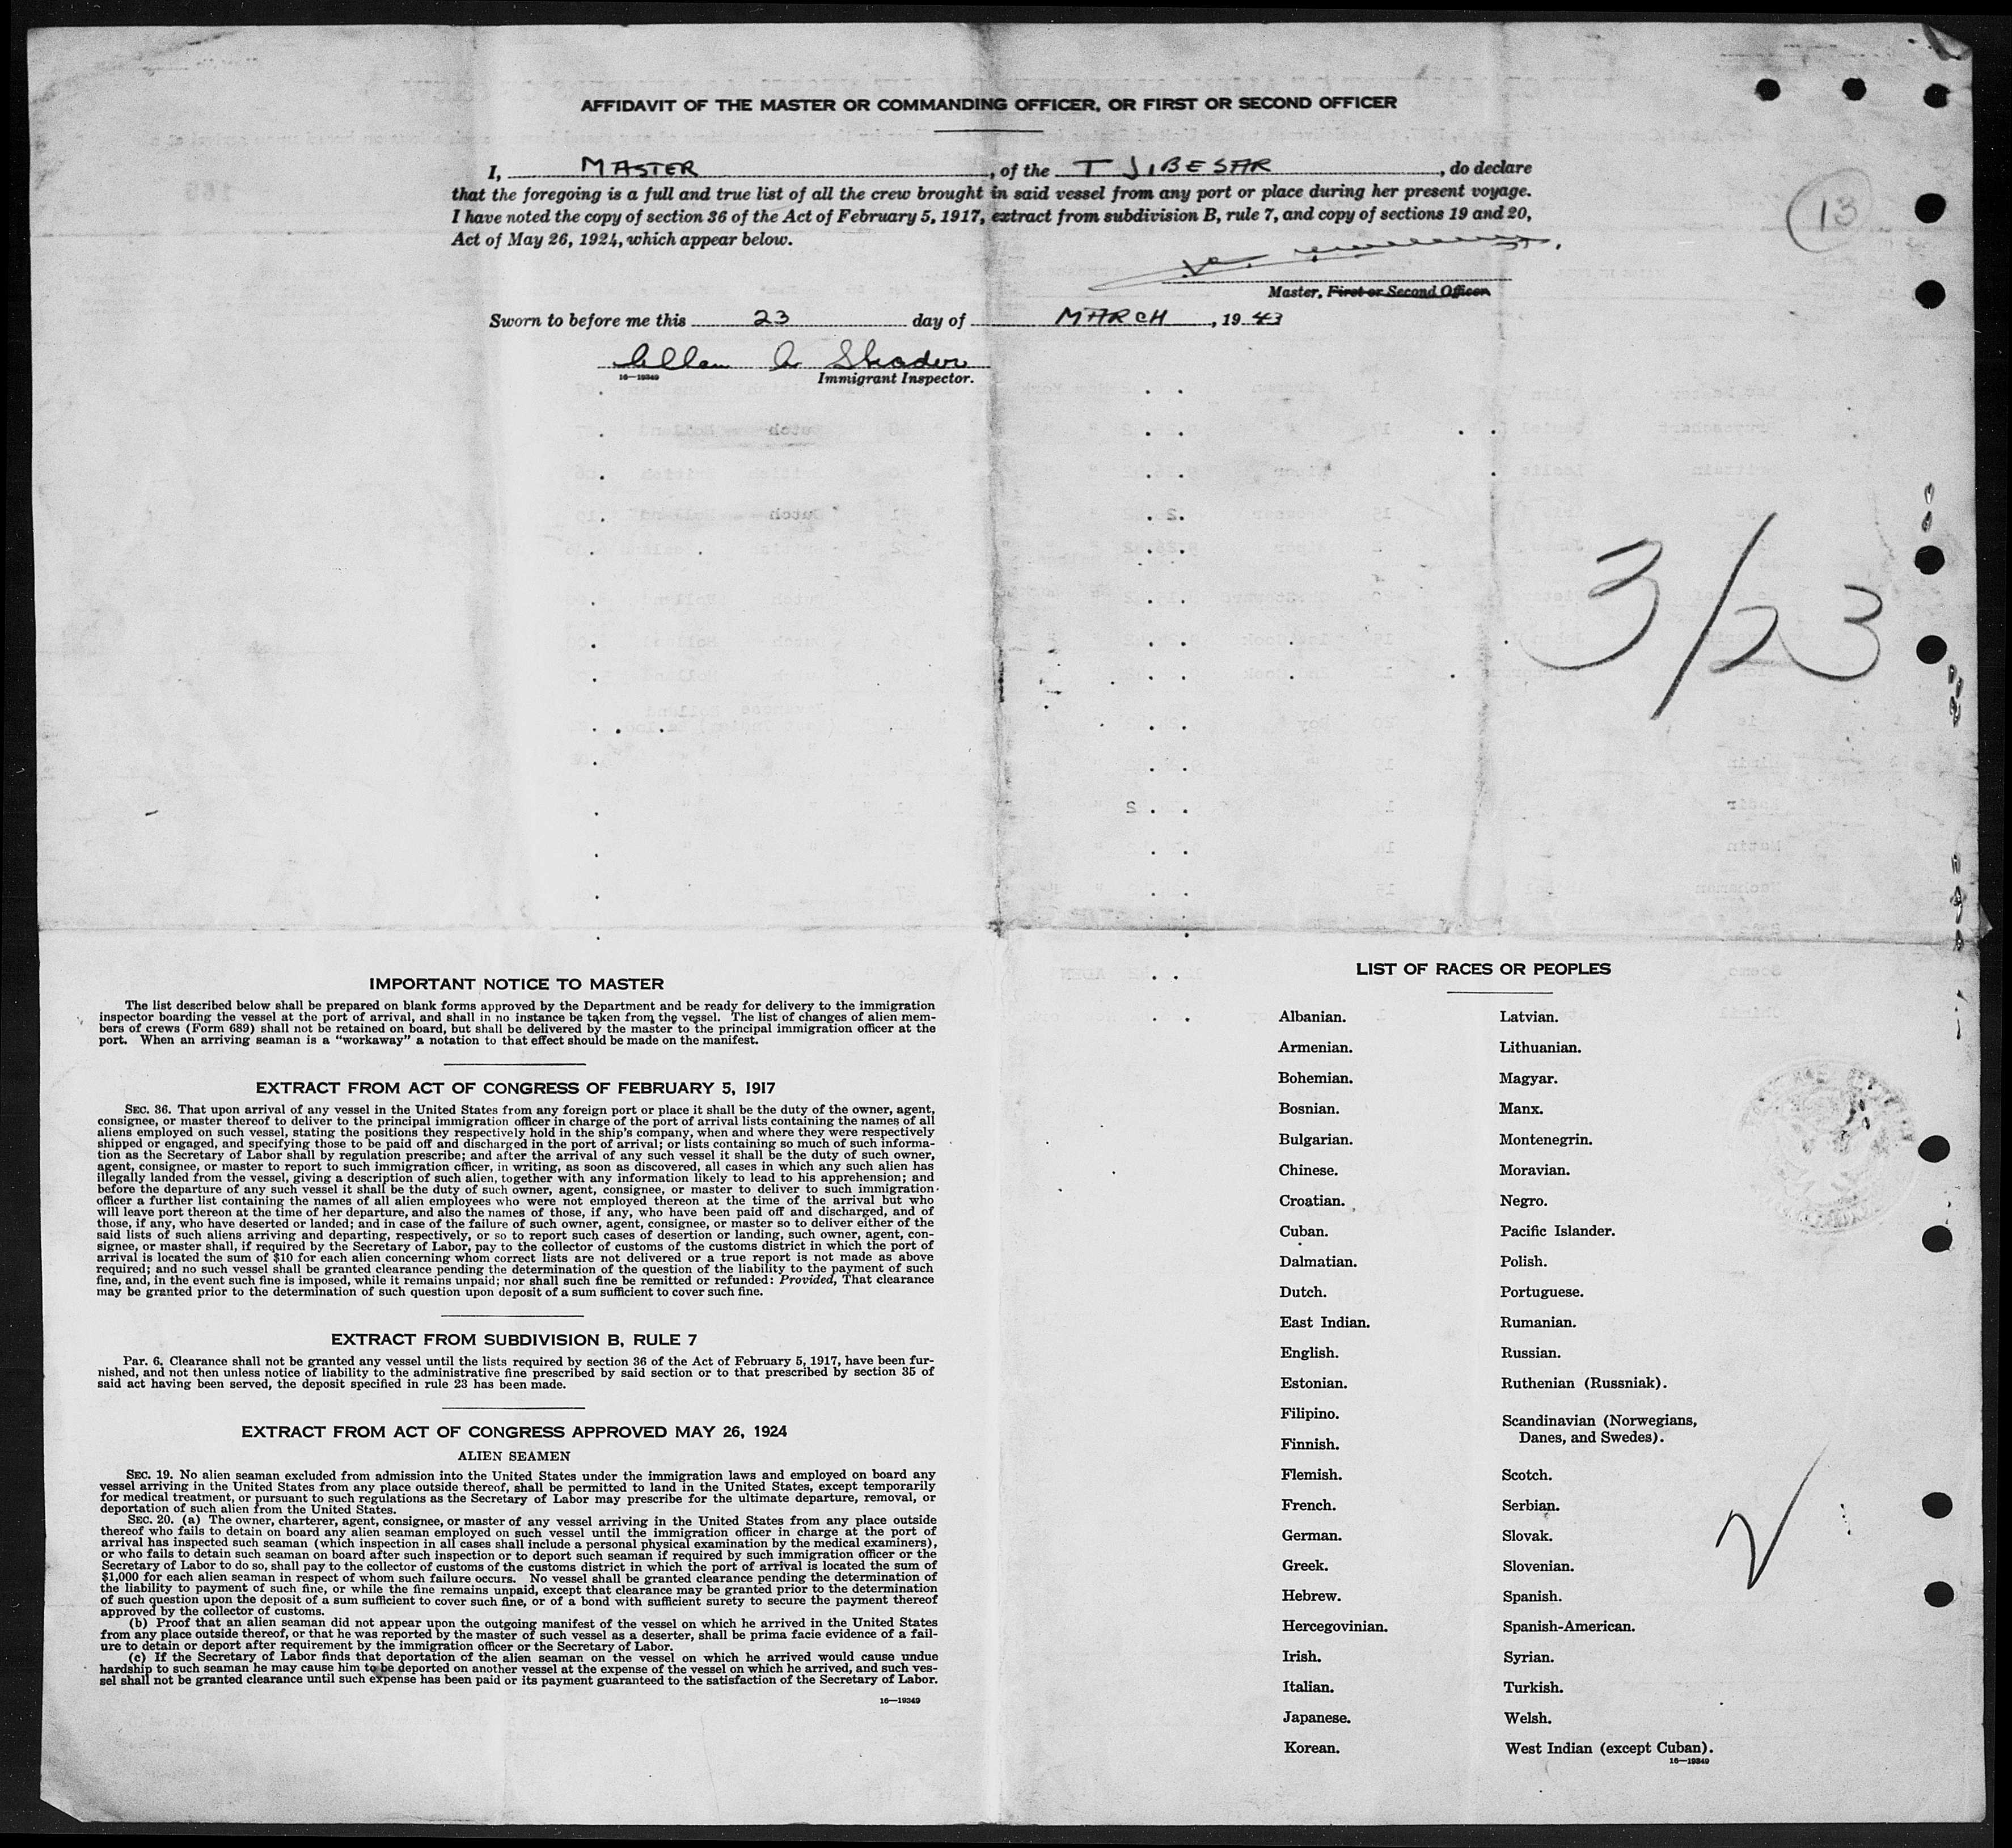 AFFIDAVIT OF THE MASTER OR COMMANDING OFFICER, OR FIRST OR SECOND OFFICER
I, MASTER, of the TJIBESAR, do declare
that the foregoing is a full and true list of all the crew brought in said vessel from any port or place during her present voyage.
I have noted the copy of section 36 of the Act of February 5, 1917, extract from subdivision B, rule 7, and copy of sections 19 and 20,
Act of May 26, 1924, which appear below.
13
Master, First or Second Officer.
Sworn to before me this 23 day of MARCH, 1943
16—19349
Immigrant Inspector.
3/23
IMPORTANT NOTICE TO MASTER
The list described below shall be prepared on blank forms approved by the Department and be ready for delivery to the immigration
inspector boarding the vessel at the port of arrival, and shall in no instance be taken from the vessel. The list of changes of alien mem-
bers of crews (Form 689) shall not be retained on board, but shall be delivered by the master to the principal immigration officer at the
port. When an arriving seaman is a "workaway" a notation to that effect should be made on the manifest.
EXTRACT FROM ACT OF CONGRESS OF FEBRUARY 5, 1917
SEC. 36. That upon arrival of any vessel in the United States from any foreign port or place it shall be the duty of the owner, agent,
consignee, or master thereof to deliver to the principal immigration officer in charge of the port of arrival lists containing the names of all
aliens employed on such vessel, stating the positions they respectively hold in the ship's company, when and where they were respectively
shipped or engaged, and specifying those to be paid off and discharged in the port of arrival; or lists containing so much of such informa-
tion as the Secretary of Labor shall by regulation prescribe; and after the arrival of any such vessel it shall be the duty of such owner,
agent, consignee, or master to report to such immigration officer, in writing, as soon as discovered, all cases in which any such alien has
illegally landed from the vessel, giving a description of such alien, together with any information likely to lead to his apprehension; and
before the departure of any such vessel it shall be the duty of such owner, agent, consignee, or master to deliver to such immigration
officer a further list containing the names of all alien employees who were not employed thereon at the time of the arrival but who
will leave port thereon at the time of her departure, and also the names of those, if any, who have been paid off and discharged, and of
those, if any, who have deserted or landed; and in case of the failure of such owner, agent, consignee, or master so to deliver either of the
said lists of such aliens arriving and departing, respectively, or so to report such cases of desertion or landing, such owner, agent, con-
signee, or master shall, if required by the Secretary of Labor, pay to the collector of customs of the customs district in which the port of
arrival is located the sum of $10 for each alien concerning whom correct lists are not delivered or a true report is not made as above
required; and no such vessel shall be granted clearance pending the determination of the question of the liability to the payment of such
fine, and, in the event such fine is imposed, while it remains unpaid; nor shall such fine be remitted or refunded: Provided, That clearance
may be granted prior to the determination of such question upon deposit of a sum sufficient to cover such fine.
EXTRACT FROM SUBDIVISION B, RULE 7
Par. 6. Clearance shall not be granted any vessel until the lists required by section 36 of the Act of February 5, 1917, have been fur-
nished, and not then unless notice of liability to the administrative fine prescribed by said section or to that prescribed by section 35 of
said act having been served, the deposit specified in rule 23 has been made.
EXTRACT FROM ACT OF CONGRESS APPROVED MAY 26, 1924
ALIEN SEAMEN
SEC. 19. No alien seaman excluded from admission into the United States under the immigration laws and employed on board any
vessel arriving in the United States from any place outside thereof, shall be permitted to land in the United States, except temporarily
for medical treatment, or pursuant to such regulations as the Secretary of Labor may prescribe for the ultimate departure, removal, or
deportation of such alien from the United States.
SEC. 20. (a) The owner, charterer, agent, consignee, or master of any vessel arriving in the United States from any place outside
thereof who fails to detain on board any alien seaman employed on such vessel until the immigration officer in charge at the port of
arrival has inspected such seaman (which inspection in all cases shall include a personal physical examination by the medical examiners),
or who fails to detain such seaman on board after such inspection or to deport such seaman if required by such immigration officer or the
Secretary of Labor to do so, shall pay to the collector of customs of the customs district in which the port of arrival is located the sum of
$1,000 for each alien seaman in respect of whom such failure occurs. No vessel shall be granted clearance pending the determination of
the liability to payment of such fine, or while the fine remains unpaid, except that clearance may be granted prior to the determination
of such question upon the deposit of a sum sufficient to cover such fine, or of a bond with sufficient surety to secure the payment thereof
approved by the collector of customs.
(b) Proof that an alien seaman did not appear upon the outgoing manifest of the vessel on which he arrived in the United States
from any place outside thereof, or that he was reported by the master of such vessel as a deserter, shall be prima facie evidence of a fail-
ure to detain or deport after requirement by the immigration officer or the Secretary of Labor.
(c) If the Secretary of Labor finds that deportation of the alien seaman on the vessel on which he arrived would cause undue
hardship to such seaman he may cause him to be deported on another vessel at the expense of the vessel on which he arrived, and such ves-
sel shall not be granted clearance until such expense has been paid or its payment guaranteed to the satisfaction of the Secretary of Labor.
16—19349
LIST OF RACES OR PEOPLES
Albanian.
Armenian.
Bohemian.
Bosnian.
Bulgarian.
Chinese.
Croatian.
Cuban.
Dalmatian.
Dutch.
East Indian.
English.
Estonian.
Filipino.
Finnish.
Flemish.
French.
German.
Greek.
Hebrew.
Hercegovinian.
Irish.
Italian.
Japanese.
Korean.
Latvian.
Lithuanian.
Magyar.
Manx.
Montenegrin.
Moravian.
Negro.
Pacific Islander.
Polish.
Portuguese.
Rumanian.
Russian.
Ruthenian (Russniak).
Scandinavian (Norwegians,
Danes, and Swedes).
Scotch.
Serbian.
Slovak.
Slovenian.
Spanish.
Spanish-American.
Syrian.
Turkish.
Welsh.
West Indian (except Cuban).
16—19349